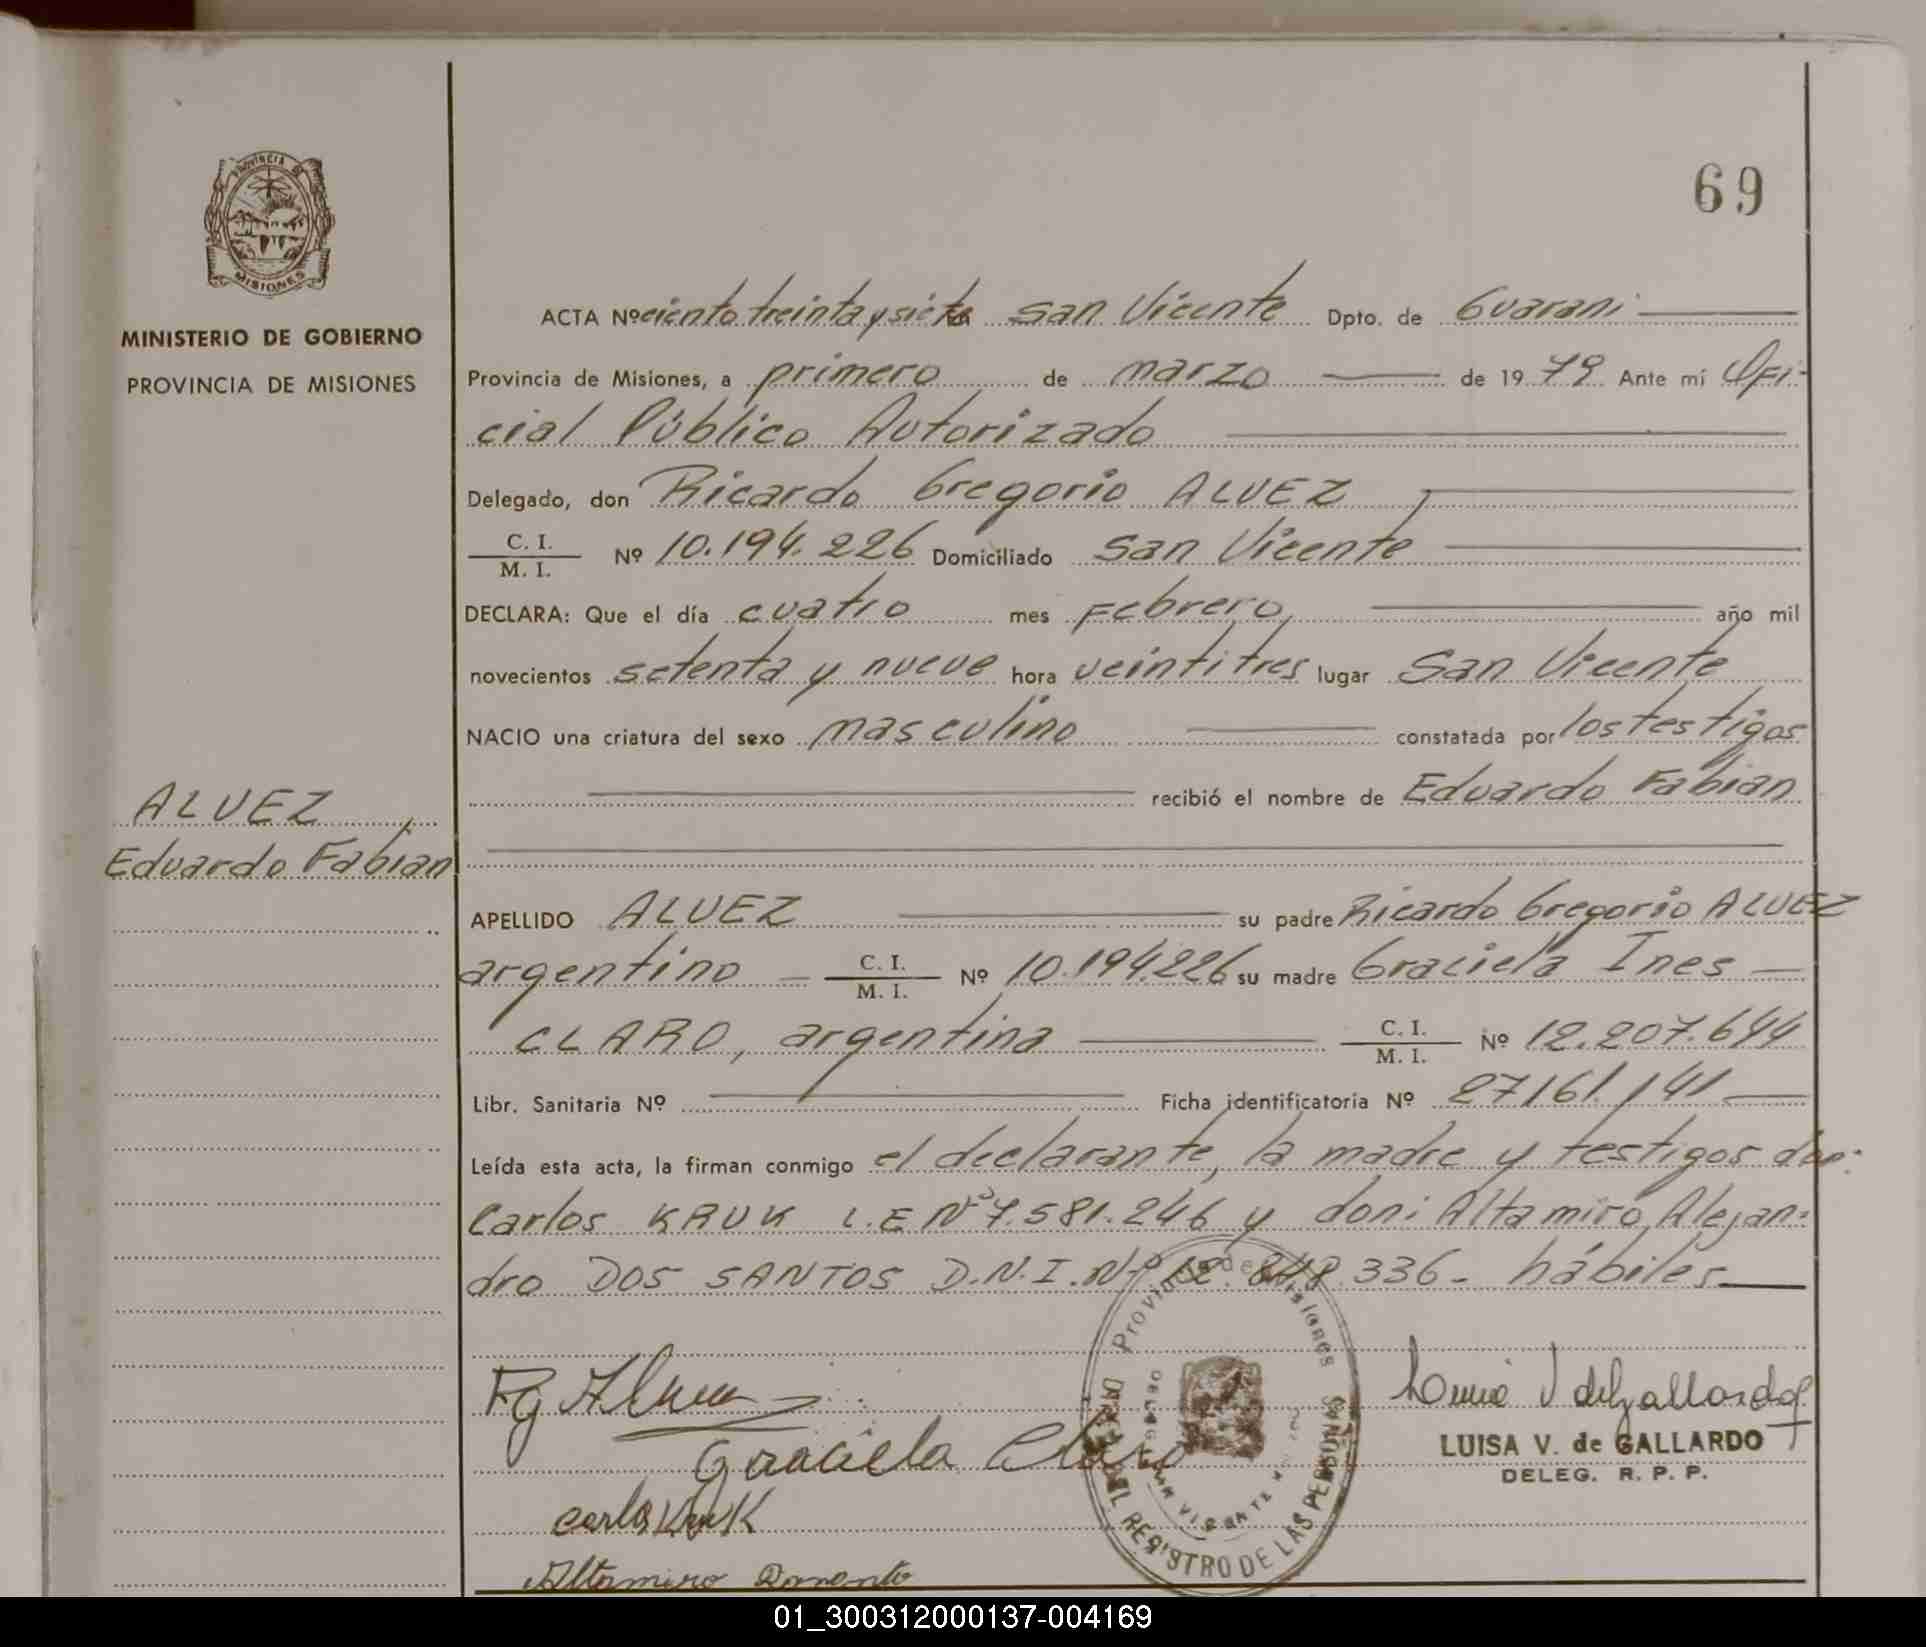 69
PROVINCIA DE
MISIONES
MINISTERIO DE GOBIERNO
PROVINCIA DE MISIONES
ACTA Nº ciento treinta y siete En San Vicente Dpto. de Guarani
Provincia de Misiones, a primero de marzo de 1979 Ante mí Ofi-
cial Público Autorizado
Delegado, don Ricardo Gregorio ALVEZ,
C. I.
M. I. Nº 10.194.226 Domiciliado San Vicente
DECLARA: Que el día cuatro mes Febrero, año mil
novecientos setenta y nueve hora veintitres lugar San Vicente
NACIO una criatura del sexo masculino constatada por los testigos
recibió el nombre de Eduardo Fabian
ALVEZ,
Eduardo Fabian
APELLIDO ALVEZ su padre Ricardo Gregorio ALVEZ
argentino - C. I.
M. I. Nº 10.194.226 su madre Graciela Ines -
CLARO, argentina C. I.
M. I. Nº 12.207.644
Libr. Sanitaria Nº Ficha identificatoria Nº 27161.141
Leída esta acta, la firman conmigo el declarante, la madre y testigos don:
Carlos KRUK L.E Nº 7.581.246 y don: Altamiro Alejan-
dro DOS SANTOS D.N.I. Nº 12.848.336- hábiles
Provincia de Misiones
DEL REGISTRO DE LAS PERSONAS
Graciela Claro
LUISA V. de GALLARDO
DELEG. R. P. P.
Carlos Kruk
Altamiro
01_300312000137-004169